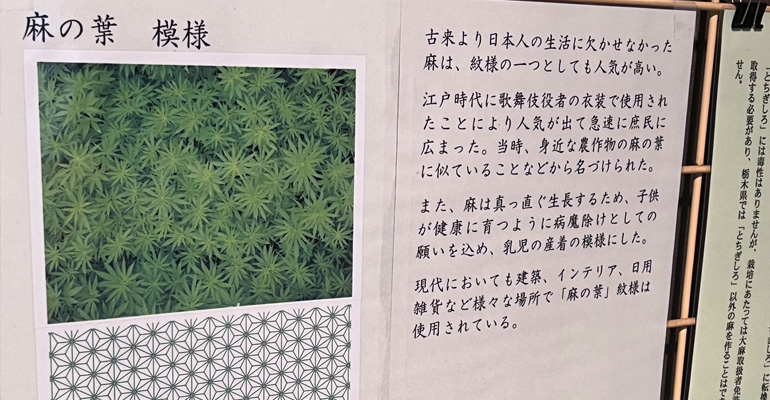 麻の葉　模様
古来より日本人の生活に欠かせなかった
麻は、紋様の一つとしても人気が高い。
江戸時代に歌舞伎役者の衣装で使用され
たことにより人気が出て急速に庶民に
広まった。当時、身近な農作物の麻の葉
に似ていることなどから名づけられた。
また、麻は真っ直ぐ生長するため、子供
が健康に育つように病魔除けとしての
願いを込め、乳児の産着の模様にした。
現代においても建築、インテリア、日用
雑貨など様々な場所で「麻の葉」紋様は
使用されている。
「とちぎしろ」には毒性はありませんが、栽培にあたっては大麻取扱者免
取得する必要があり、栃木県では「とちぎしろ」以外の麻を作ることはで
せん。